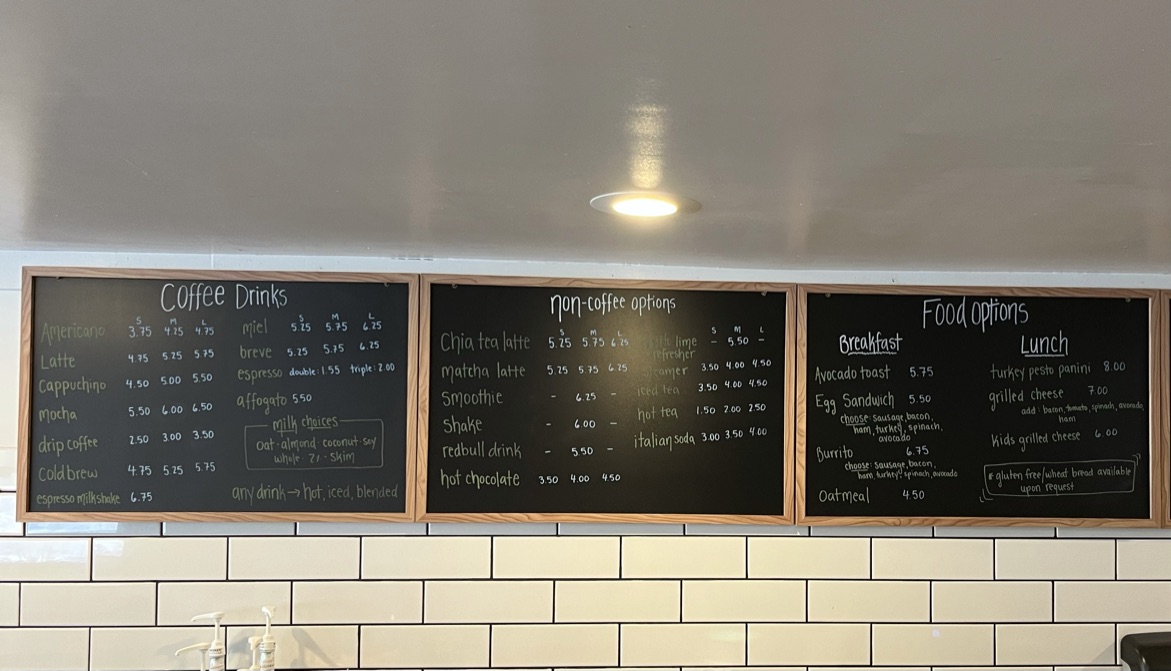 Coffee Drinks
S M L
Americano 3.75 4.25 4.75
Latte 4.75 5.25 5.75
Cappuchino 4.50 5.00 5.50
mocha 5.50 6.00 6.50
drip coffee 2.50 3.00 3.50
Cold brew 4.75 5.25 5.75
espresso milkshake 6.75
S M L
miel 5.25 5.75 6.25
breve 5.25 5.75 6.25
espresso double: 1.55 triple: 2.00
affogato 5.50
milk choices
oat · almond · coconut · soy
whole · 2% · skim
any drink → hot, iced, blended
non-coffee options
S M L
Chia tea latte 5.25 5.75 6.25
matcha latte 5.25 5.75 6.25
Smoothie - 6.25 -
Shake - 6.00 -
redbull drink - 5.50 -
hot chocolate 3.50 4.00 4.50
S M L
lime - 5.50 -
refresher
steamer 3.50 4.00 4.50
iced tea 3.50 4.00 4.50
hot tea 1.50 2.00 2.50
italian soda 3.00 3.50 4.00
Food options
Breakfast
Avocado toast 5.75
Egg Sandwich 5.50
choose: sausage, bacon,
ham, turkey, spinach,
avocado
Burrito 6.75
choose: sausage, bacon,
ham, turkey, spinach, avocado
Oatmeal 4.50
Lunch
turkey pesto panini 8.00
grilled cheese 7.00
add: bacon, tomato, spinach, avocado,
ham
Kids grilled cheese 6.00
* gluten free/wheat bread available
upon request